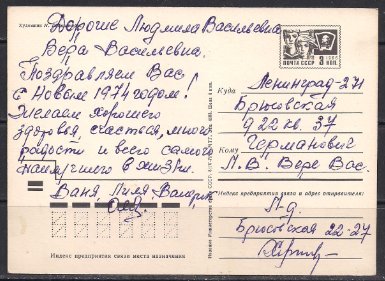 Дорогие Людмила Васильевна
Вера Васильевна.
Поздравляем Вас
с Новым 1974 годом!
Желаем хорошего
здоровья, счастья, много
радости и всего самого
наилучшего в жизни.
Ваня Лиля Валерик
Индекс предприятия связи места назначения
ПОЧТА СССР
Куда Ленинград-271
Брюсовская
д 22 кв. 37
Кому Германович
Л.В. Вере Вас.
Индекс предприятия связи и адрес отправителя:
Л-д
Брюсовская 22-27